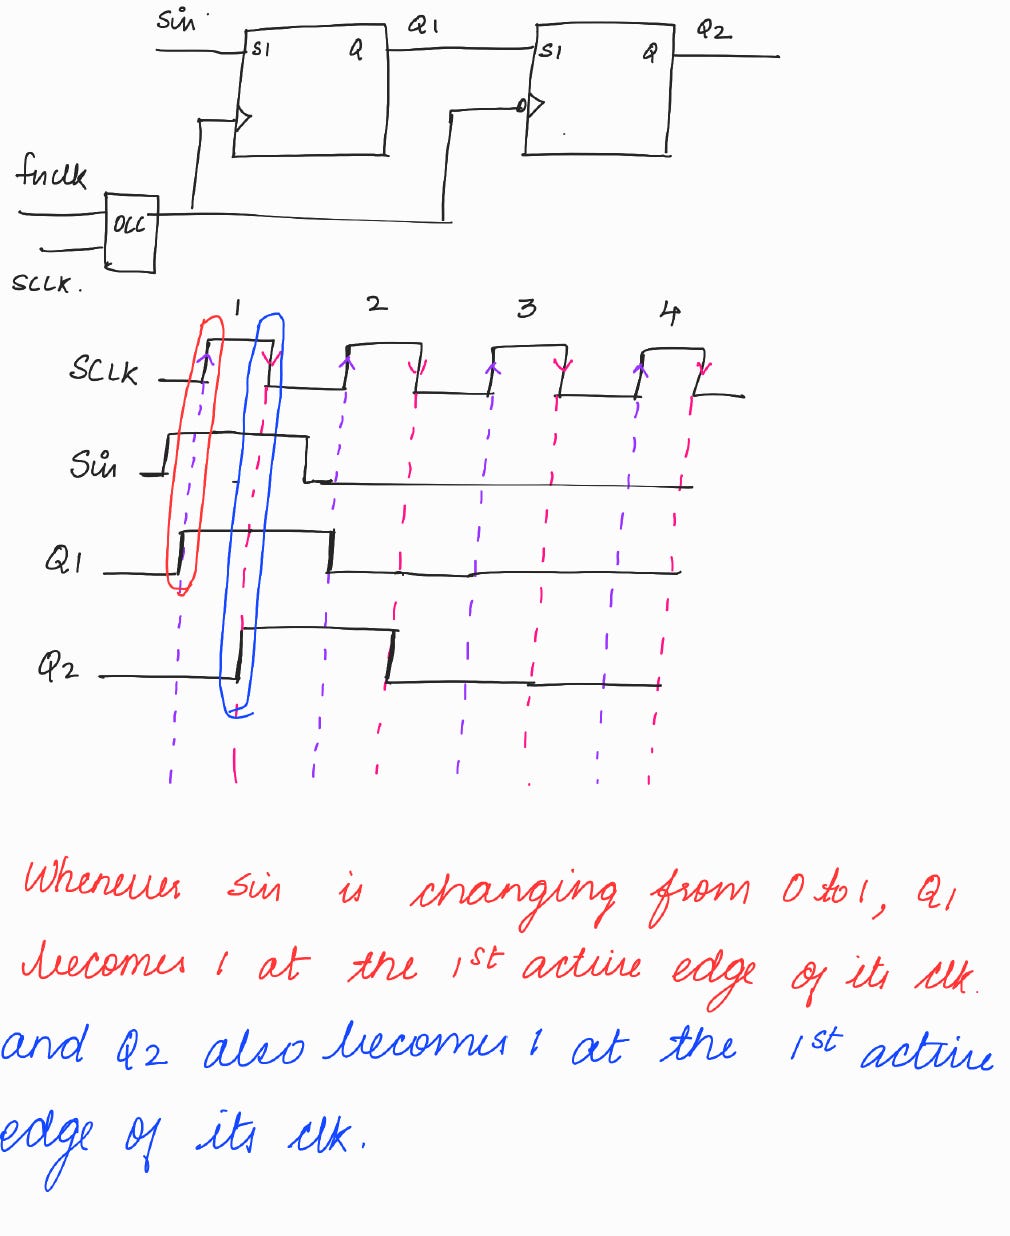 Sin
Q1
Q2
S1
Q
S1
Q
fnclk
OCC
SCLK.
1
2
3
4
SCLK
Sin
Q1
Q2
Whenever sin is changing from 0 to 1, Q1
becomes 1 at the 1st active edge of its clk.
and Q2 also becomes 1 at the 1st active
edge of its clk.